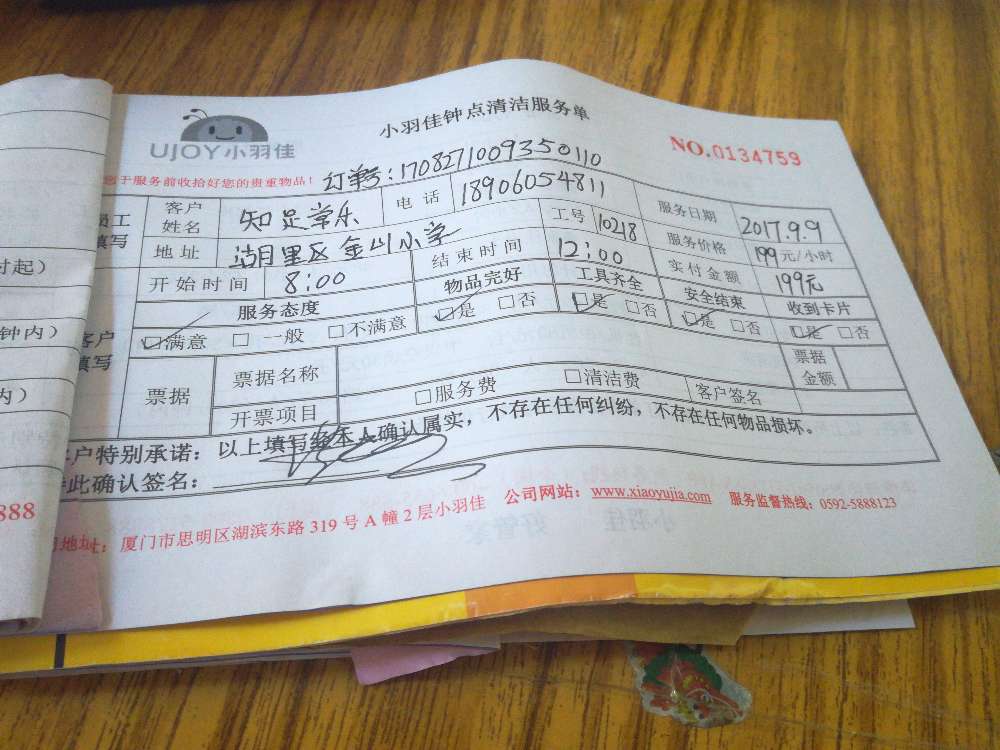 小羽佳钟点清洁服务单
UJOY小羽佳
NO.0134759
您于服务前收拾好您的贵重物品！ 订单号：1708271009350110
员工填写 客户姓名 知足常乐 电话 18906054811 服务日期 2017.9.9
地址 湖里区金山小学 工号 10218 服务价格 199元/小时
开始时间 8:00 结束时间 12:00 实付金额 199元
服务态度 物品完好 工具齐全 安全结束 收到卡片
客户填写 ☑满意 □一般 □不满意 ☑是 □否 ☑是 □否 ☑是 □否 ☑是 □否
票据 票据名称 票据金额
开票项目 □服务费 □清洁费 客户签名
客户特别承诺：以上填写经本人确认属实，不存在任何纠纷，不存在任何物品损坏。
此确认签名：
地址：厦门市思明区湖滨东路319号A幢2层小羽佳 公司网站：www.xiaoyujia.com 服务监督热线：0592-5888123
时起）
钟内）
内）
888